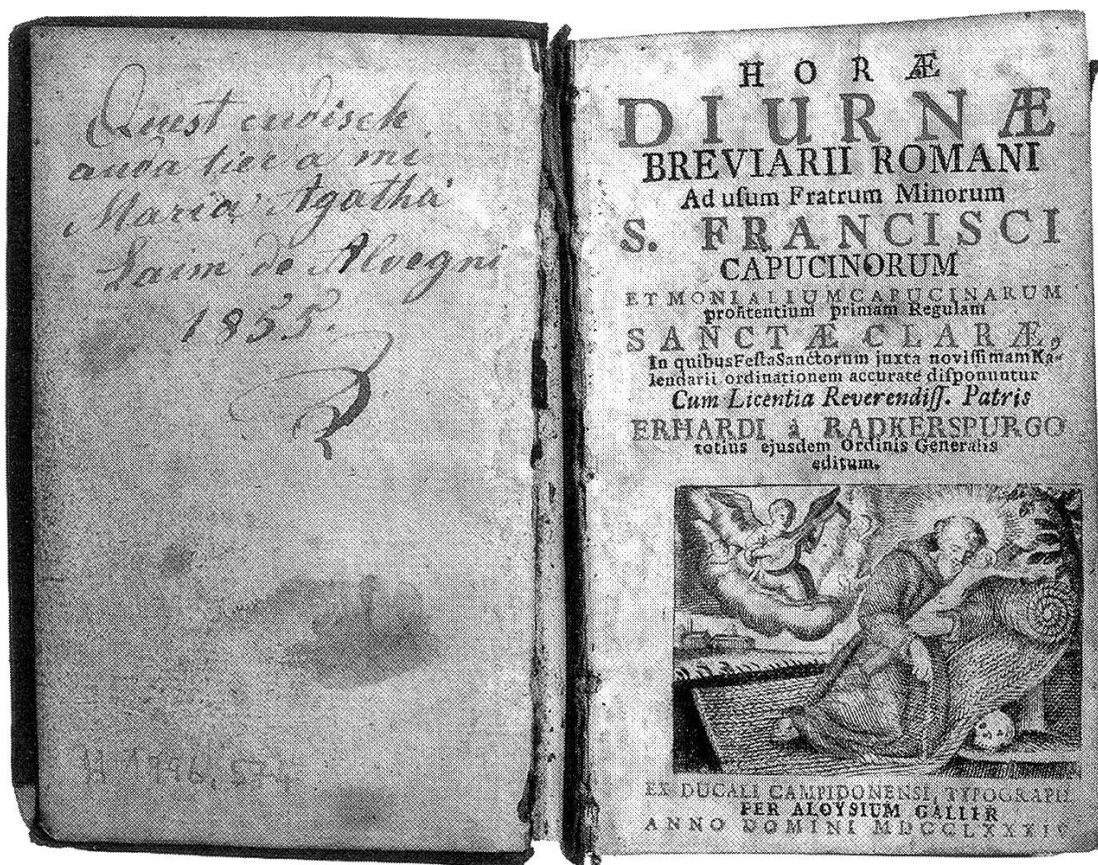 Quest cudisch
auda tier a mi
Maria Agatha
Laim de Alvegni
1855.
H 1996. 57
HORÆ
DIURNÆ
BREVIARII ROMANI
Ad uſum Fratrum Minorum
S. FRANCISCI
CAPUCINORUM
ET MONIALIUM CAPUCINARUM
profitentium primam Regulam
SANCTÆ CLARÆ,
In quibus Feſta Sanctorum juxta noviſſimam Ka-
lendarii ordinationem accurate diſponuntur
Cum Licentia Reverendiſſ. Patris
ERHARDI à RADKERSPURGO
totius ejusdem Ordinis Generalis
editum.
EX DUCALI CAMPIDONENSI, TYPOGRAPH
PER ALOYSIUM GALLER
ANNO DOMINI MDCCLXXXIV